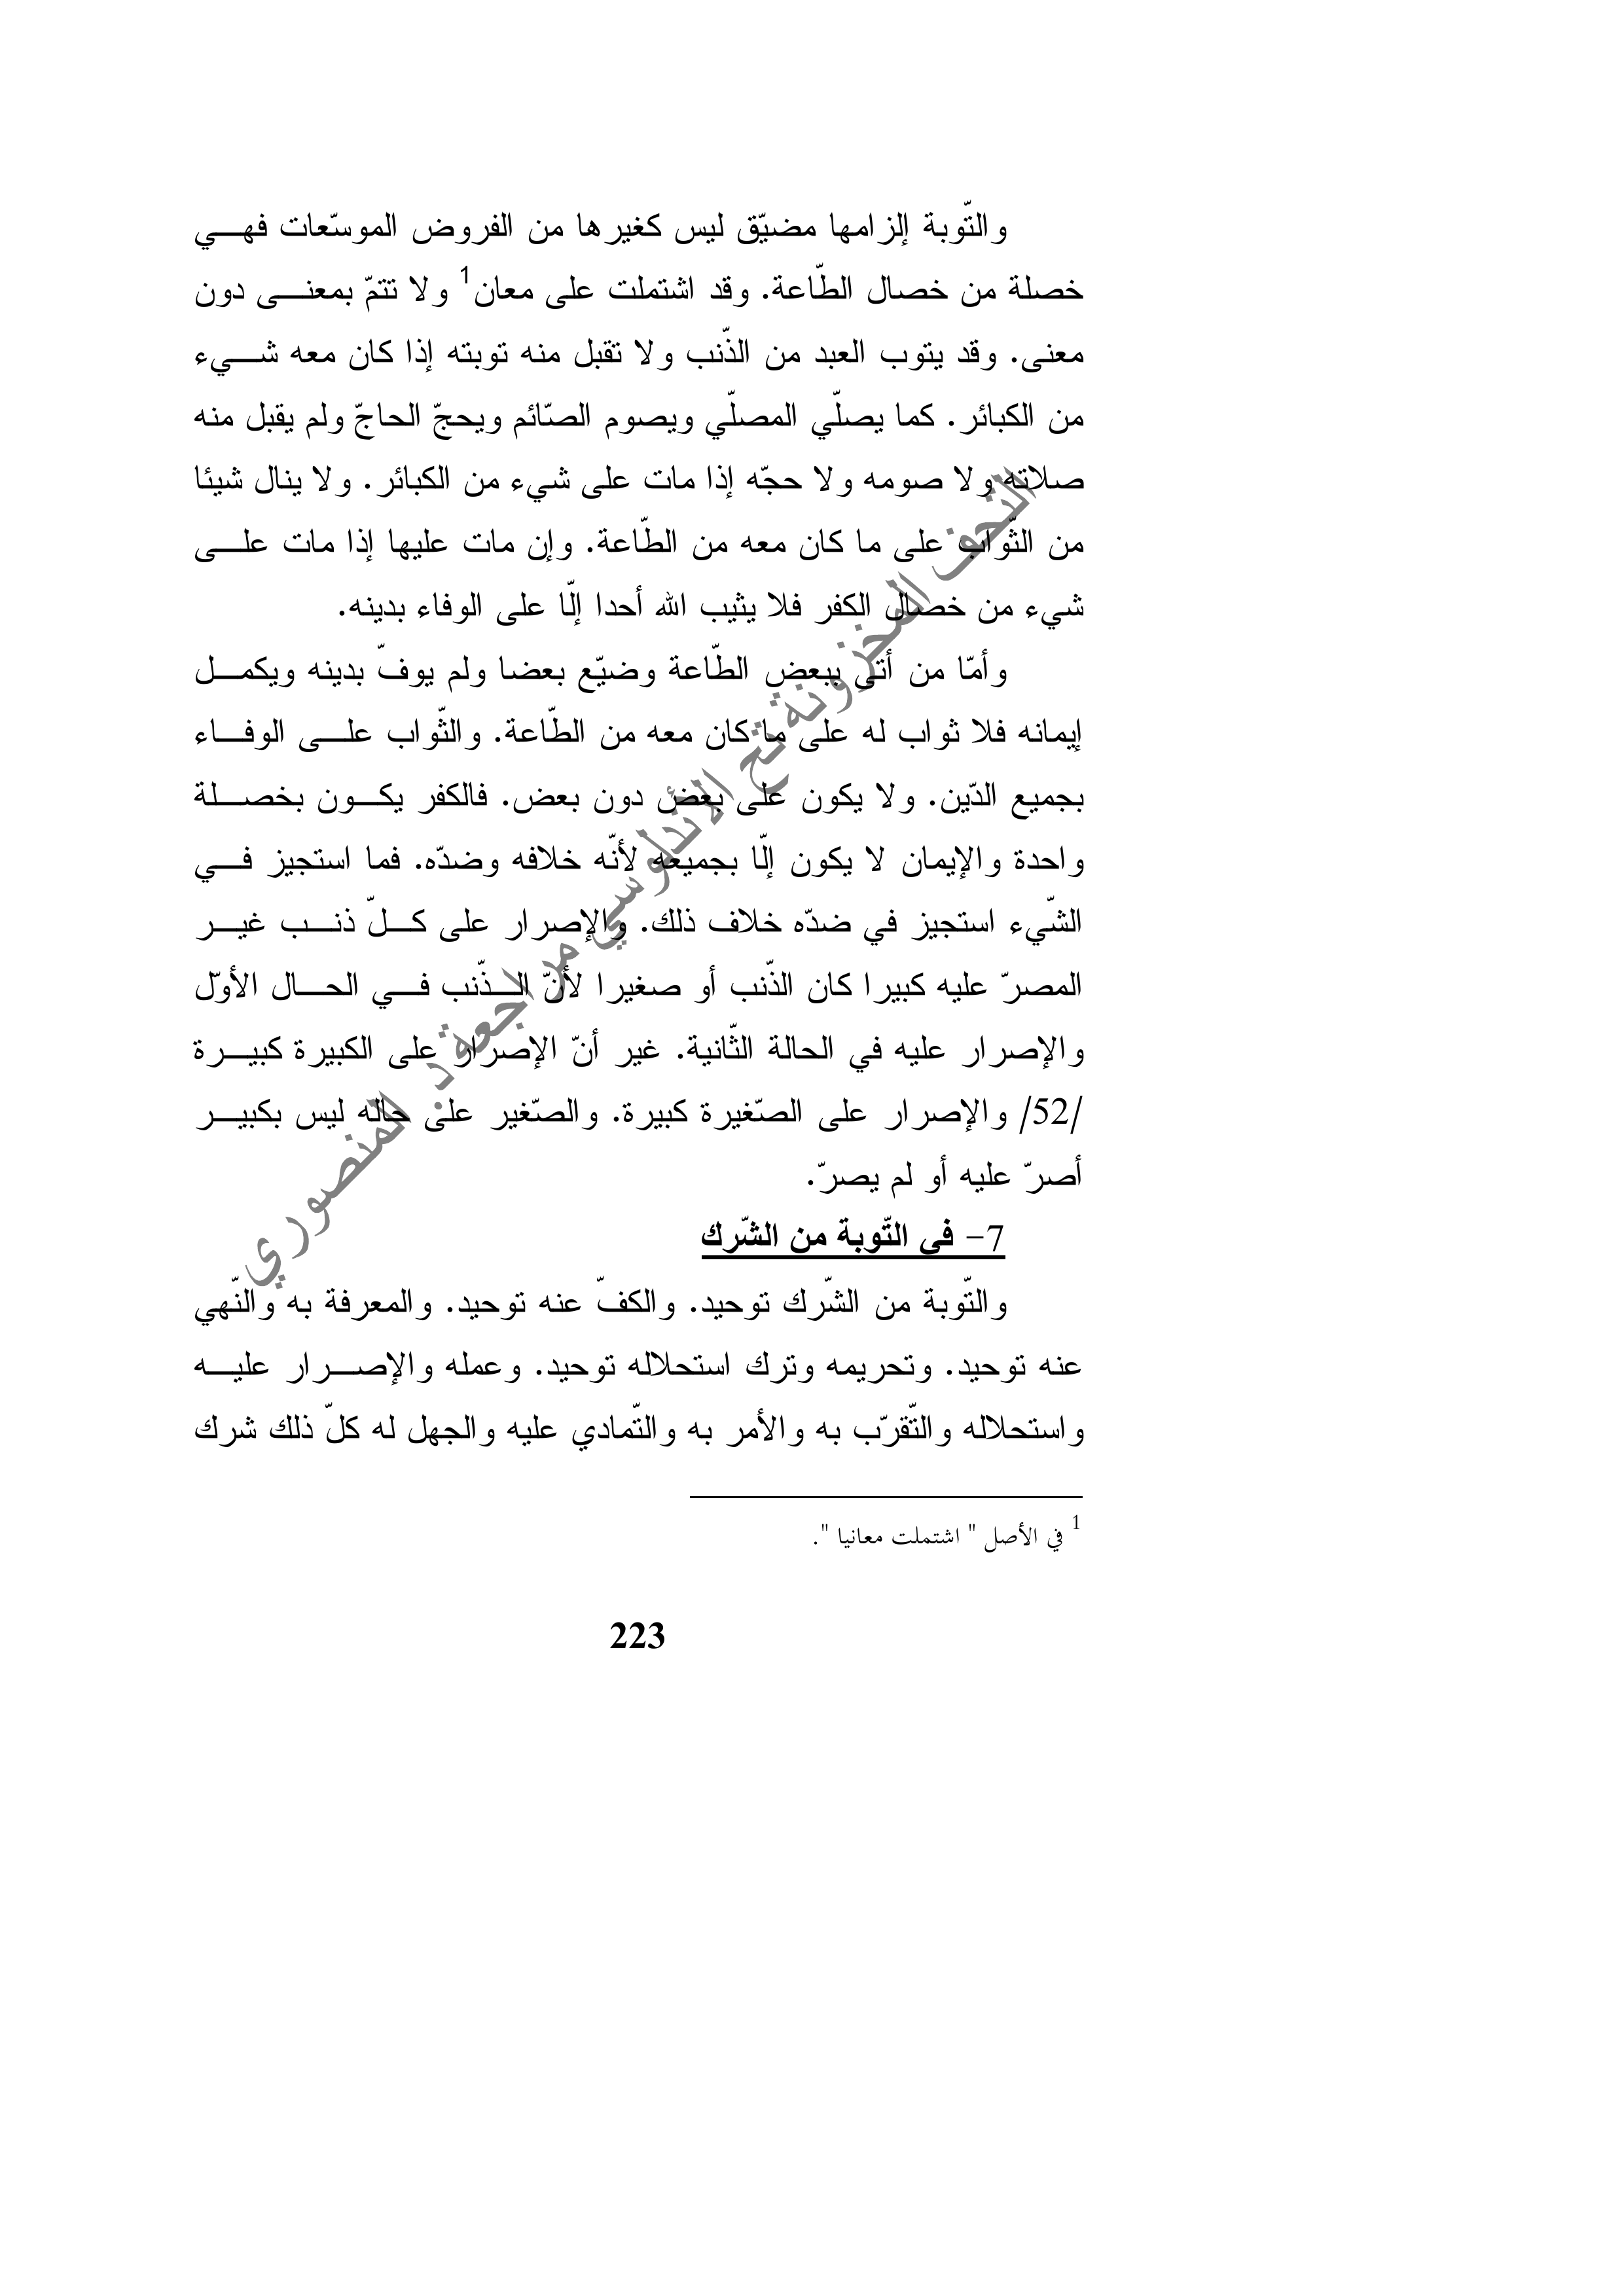 والتّوبة إلزامها مضيّق ليس كغيرها من الفروض الموسّعات فهي
خصلة من خصال الطّاعة. وقد اشتملت على معان1 ولا تتمّ بمعنى دون
معنى. وقد يتوب العبد من الذّنب ولا تقبل منه توبته إذا كان معه شيء
من الكبائر. كما يصلّي المصلّي ويصوم الصّائم ويحجّ الحاجّ ولم يقبل منه
صلاته ولا صومه ولا حجّه إذا مات على شيء من الكبائر. ولا ينال شيئا
من الثّواب على ما كان معه من الطّاعة. وإن مات عليها إذا مات على
شيء من خصال الكفر فلا يثيب الله أحدا إلّا على الوفاء بدينه.
وأمّا من أتى ببعض الطّاعة وضيّع بعضا ولم يوفّ بدينه ويكمل
إيمانه فلا ثواب له على ما كان معه من الطّاعة. والثّواب على الوفاء
بجميع الدّين. ولا يكون على بعض دون بعض. فالكفر يكون بخصلة
واحدة والإيمان لا يكون إلّا بجميعه لأنّه خلافه وضدّه. فما استجيز في
الشّيء استجيز في ضدّه خلاف ذلك. والإصرار على كلّ ذنب غير
المصرّ عليه كبيرا كان الذّنب أو صغيرا لأنّ الذّنب في الحال الأوّل
والإصرار عليه في الحالة الثّانية. غير أنّ الإصرار على الكبيرة كبيرة
/52/ والإصرار على الصّغيرة كبيرة. والصّغير على حاله ليس بكبير
أصرّ عليه أو لم يصرّ.
7- في التّوبة من الشّرك
والتّوبة من الشّرك توحيد. والكفّ عنه توحيد. والمعرفة به والنّهي
عنه توحيد. وتحريمه وترك استحلاله توحيد. وعمله والإصرار عليه
واستحلاله والتّقرّب به والأمر به والتّمادي عليه والجهل له كلّ ذلك شرك
1 في الأصل " اشتملت معانيا ".
223
التحف المخزونة تح الأندلوسي مراجعة د. المنصوري